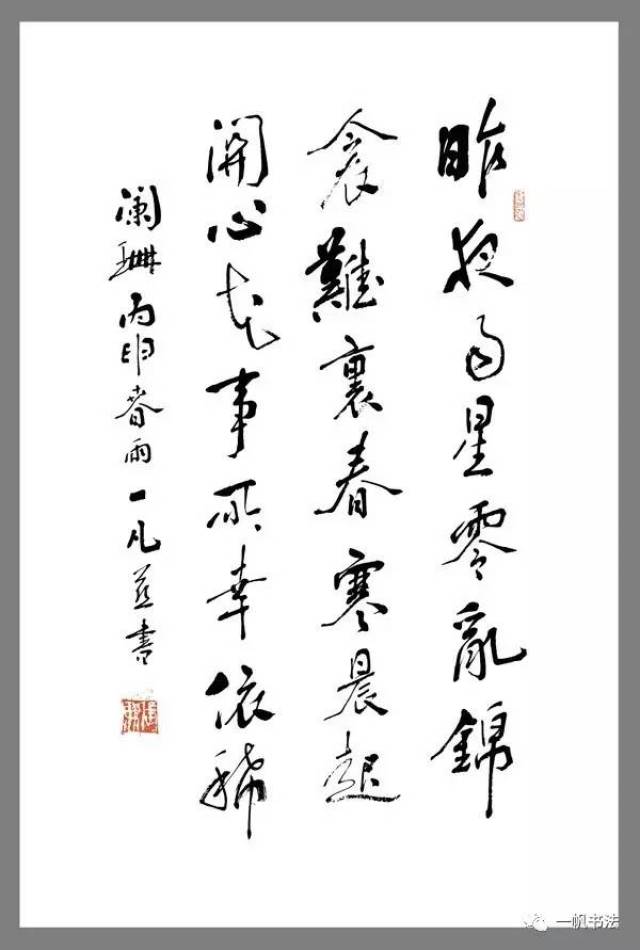 昨夜雨星零亂錦
衾難裹春寒晨起
開心花事所幸依稀
闌珊丙申春雨一凡並書
一帆书法